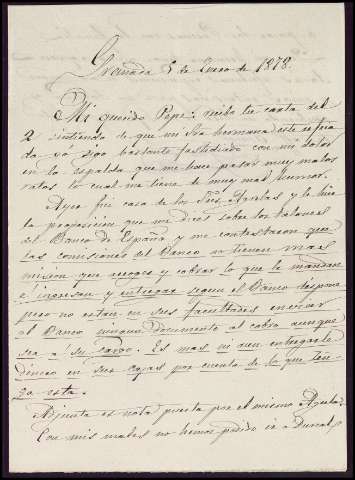 Granada 5 de Enero de 1878.
Mi querido Pepe: recibo tu carta del
2 sintiendo de que mi Sra hermana esté resfria
da yo sigo bastante fastidiado con mi dolor
en la espalda que me hace pasar muy malos
ratos lo cual me tiene de muy mal humor.
Ayer fui casa de los Sres Agrelas y le hice
la proposicion que me dices sobre los talones
del Banco de España y me contestaron que
las comisiones del Banco no tienen mas
mision que recoger y cobrar lo que le mandan
e ingresan y entregar segun el Banco dispone
pero no estan en sus facultades enviar
al Banco ningun documento al cobro aunque
sea a su cargo. Es mas ni aun entregarle
dinero en sus cajas por cuenta de lo que ten-
ga esta.
Adjunta es nota puesta por el mismo Agrela.
Con mis males no hemos podido ir a Durcal,